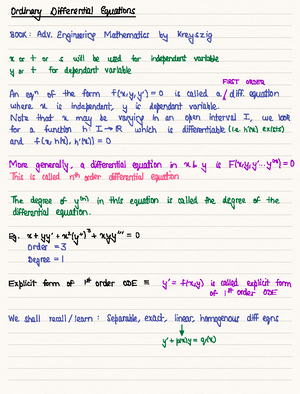 Ordinary Differential Equations
BOOK: Adv. Engineering Mathematics by Kreyszig
x or t or s will be used for independent variable
y or t for dependent variable
FIRST ORDER
An eqⁿ of the form f(x,y,y') = 0 is called a / diff. equation
where x is independent, y is dependent variable.
Note that x may be varying in an open interval I, we look
for a function h: I → ℝ which is differentiable (i.e. h'(x) exists)
and f(x, h(x), h'(x)) = 0
More generally, a differential equation in x & y is F(x,y,y'...y⁽ⁿ⁾) = 0
This is called nᵗʰ order differential equation
The degree of y⁽ⁿ⁾ in this equation is called the degree of the
differential equation.
Eg. x + yy' + x²(y'')³ + xyy''' = 0
Order = 3
Degree = 1
Explicit form of 1ˢᵗ order ODE ≡ y' = f(x,y) is called explicit form
of 1ˢᵗ order ODE
We shall recall/learn : Separable, exact, linear, homogenous diff eqns
y' + p(x)y = q(x)